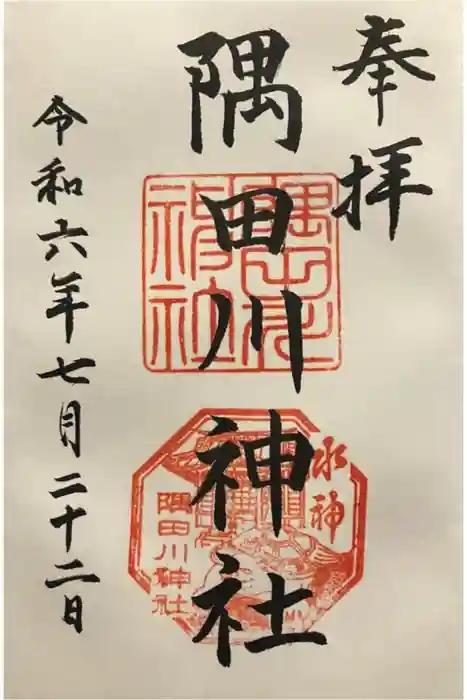 奉拝
隅田川神社
令和六年七月二十二日
水神
隅田川神社